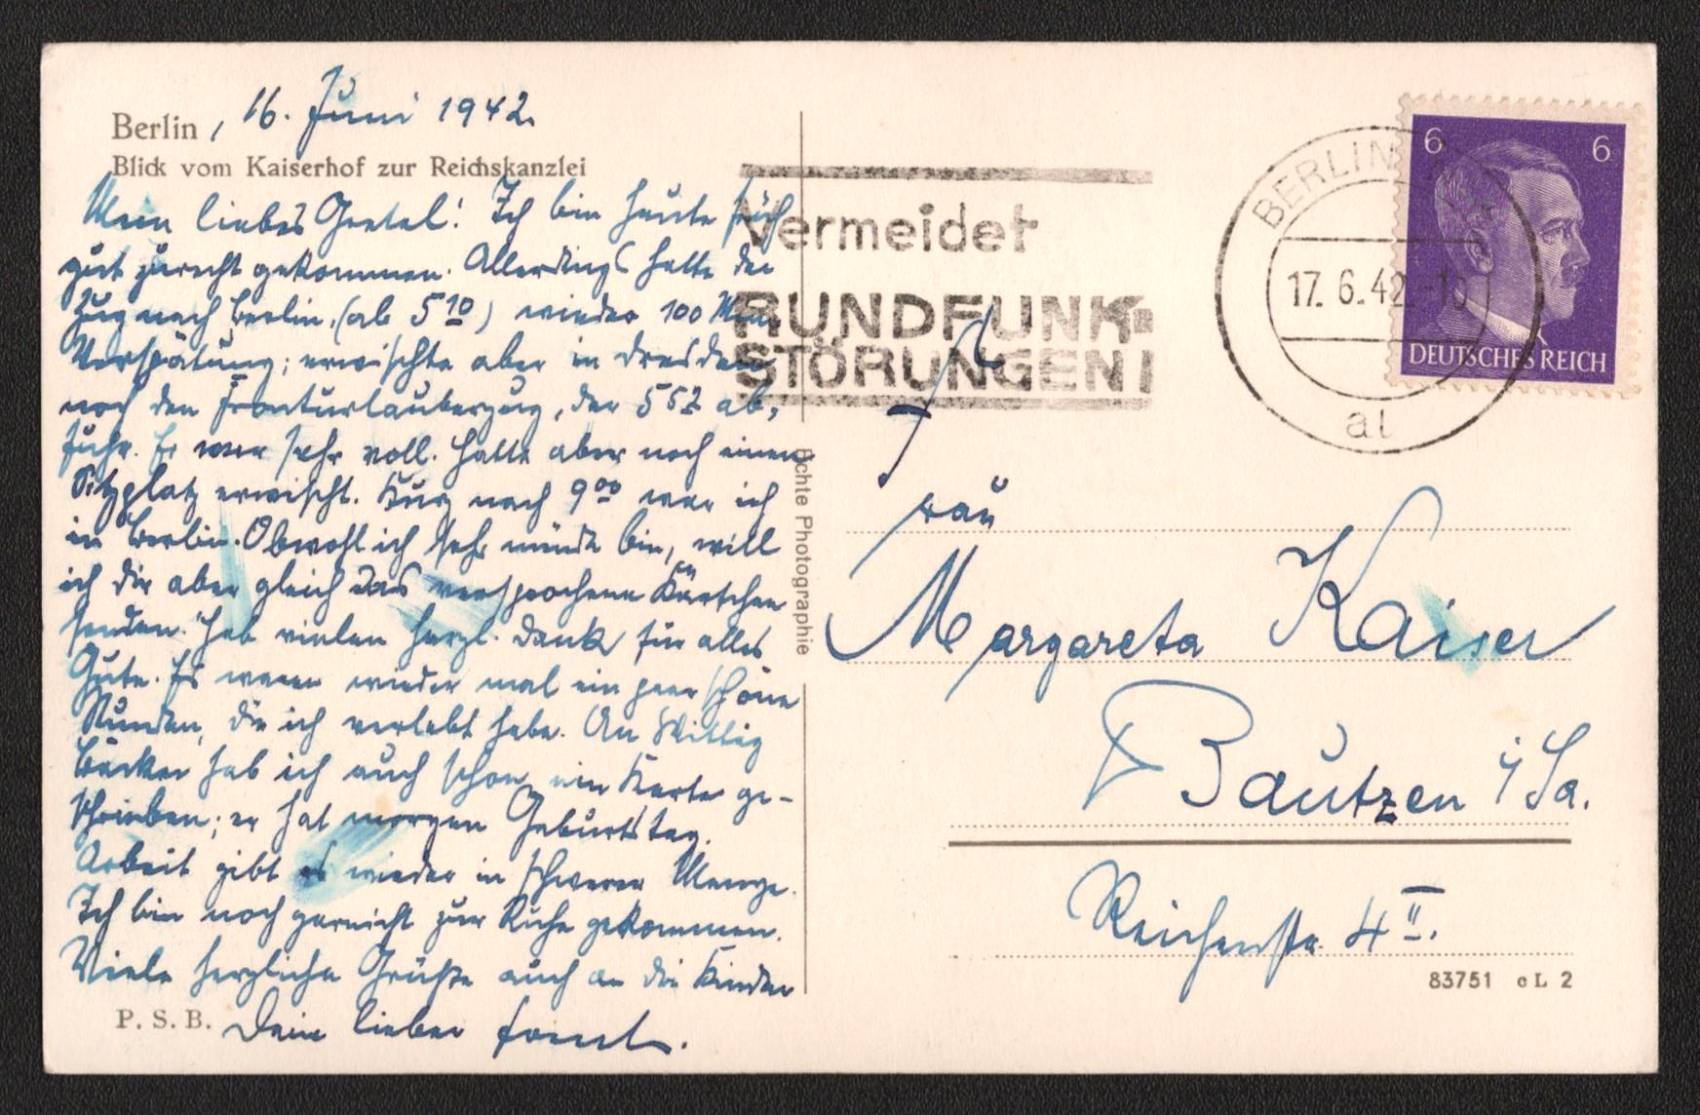 Berlin, 16. Juni 1942.
Blick vom Kaiserhof zur Reichskanzlei
Mein liebes Gretel! Ich bin heute früh
gut zurecht gekommen. Allerdings hatte der
Zug nach Berlin, (ab 5 10) wieder 100 Min
Verspätung; erwischte aber in Dresden
noch den Fronturlauberzug, der 5 52 ab,
fuhr. Er war sehr voll. Hatte aber noch einen
Sitzplatz erwischt. Kurz nach 9 00 war ich
in Berlin. Obwohl ich sehr müde bin, will
ich dir aber gleich das versprochene Kärtchen
senden. Hab vielen herzl. Dank für alles
Gute. Es waren wieder mal ein paar schöne
Stunden, die ich verlebt habe. An
Bäcker hab ich auch schon ein Karte ge-
schrieben; er hat morgen Geburtstag.
Arbeit gibt es wieder in schwerer Menge.
Ich bin noch garnicht zur Ruhe gekommen.
Viele herzliche Grüße auch an die Kinder
P. S. B. Dein lieber
Echte Photographie
Vermeidet
RUNDFUNK-
STÖRUNGEN!
BERLIN
17. 6. 42.-10
al
6 6
DEUTSCHES REICH
Frau
Margareta Kaiser
Bautzen i/Sa.
Reichenstr. 4 II.
83751 c L 2